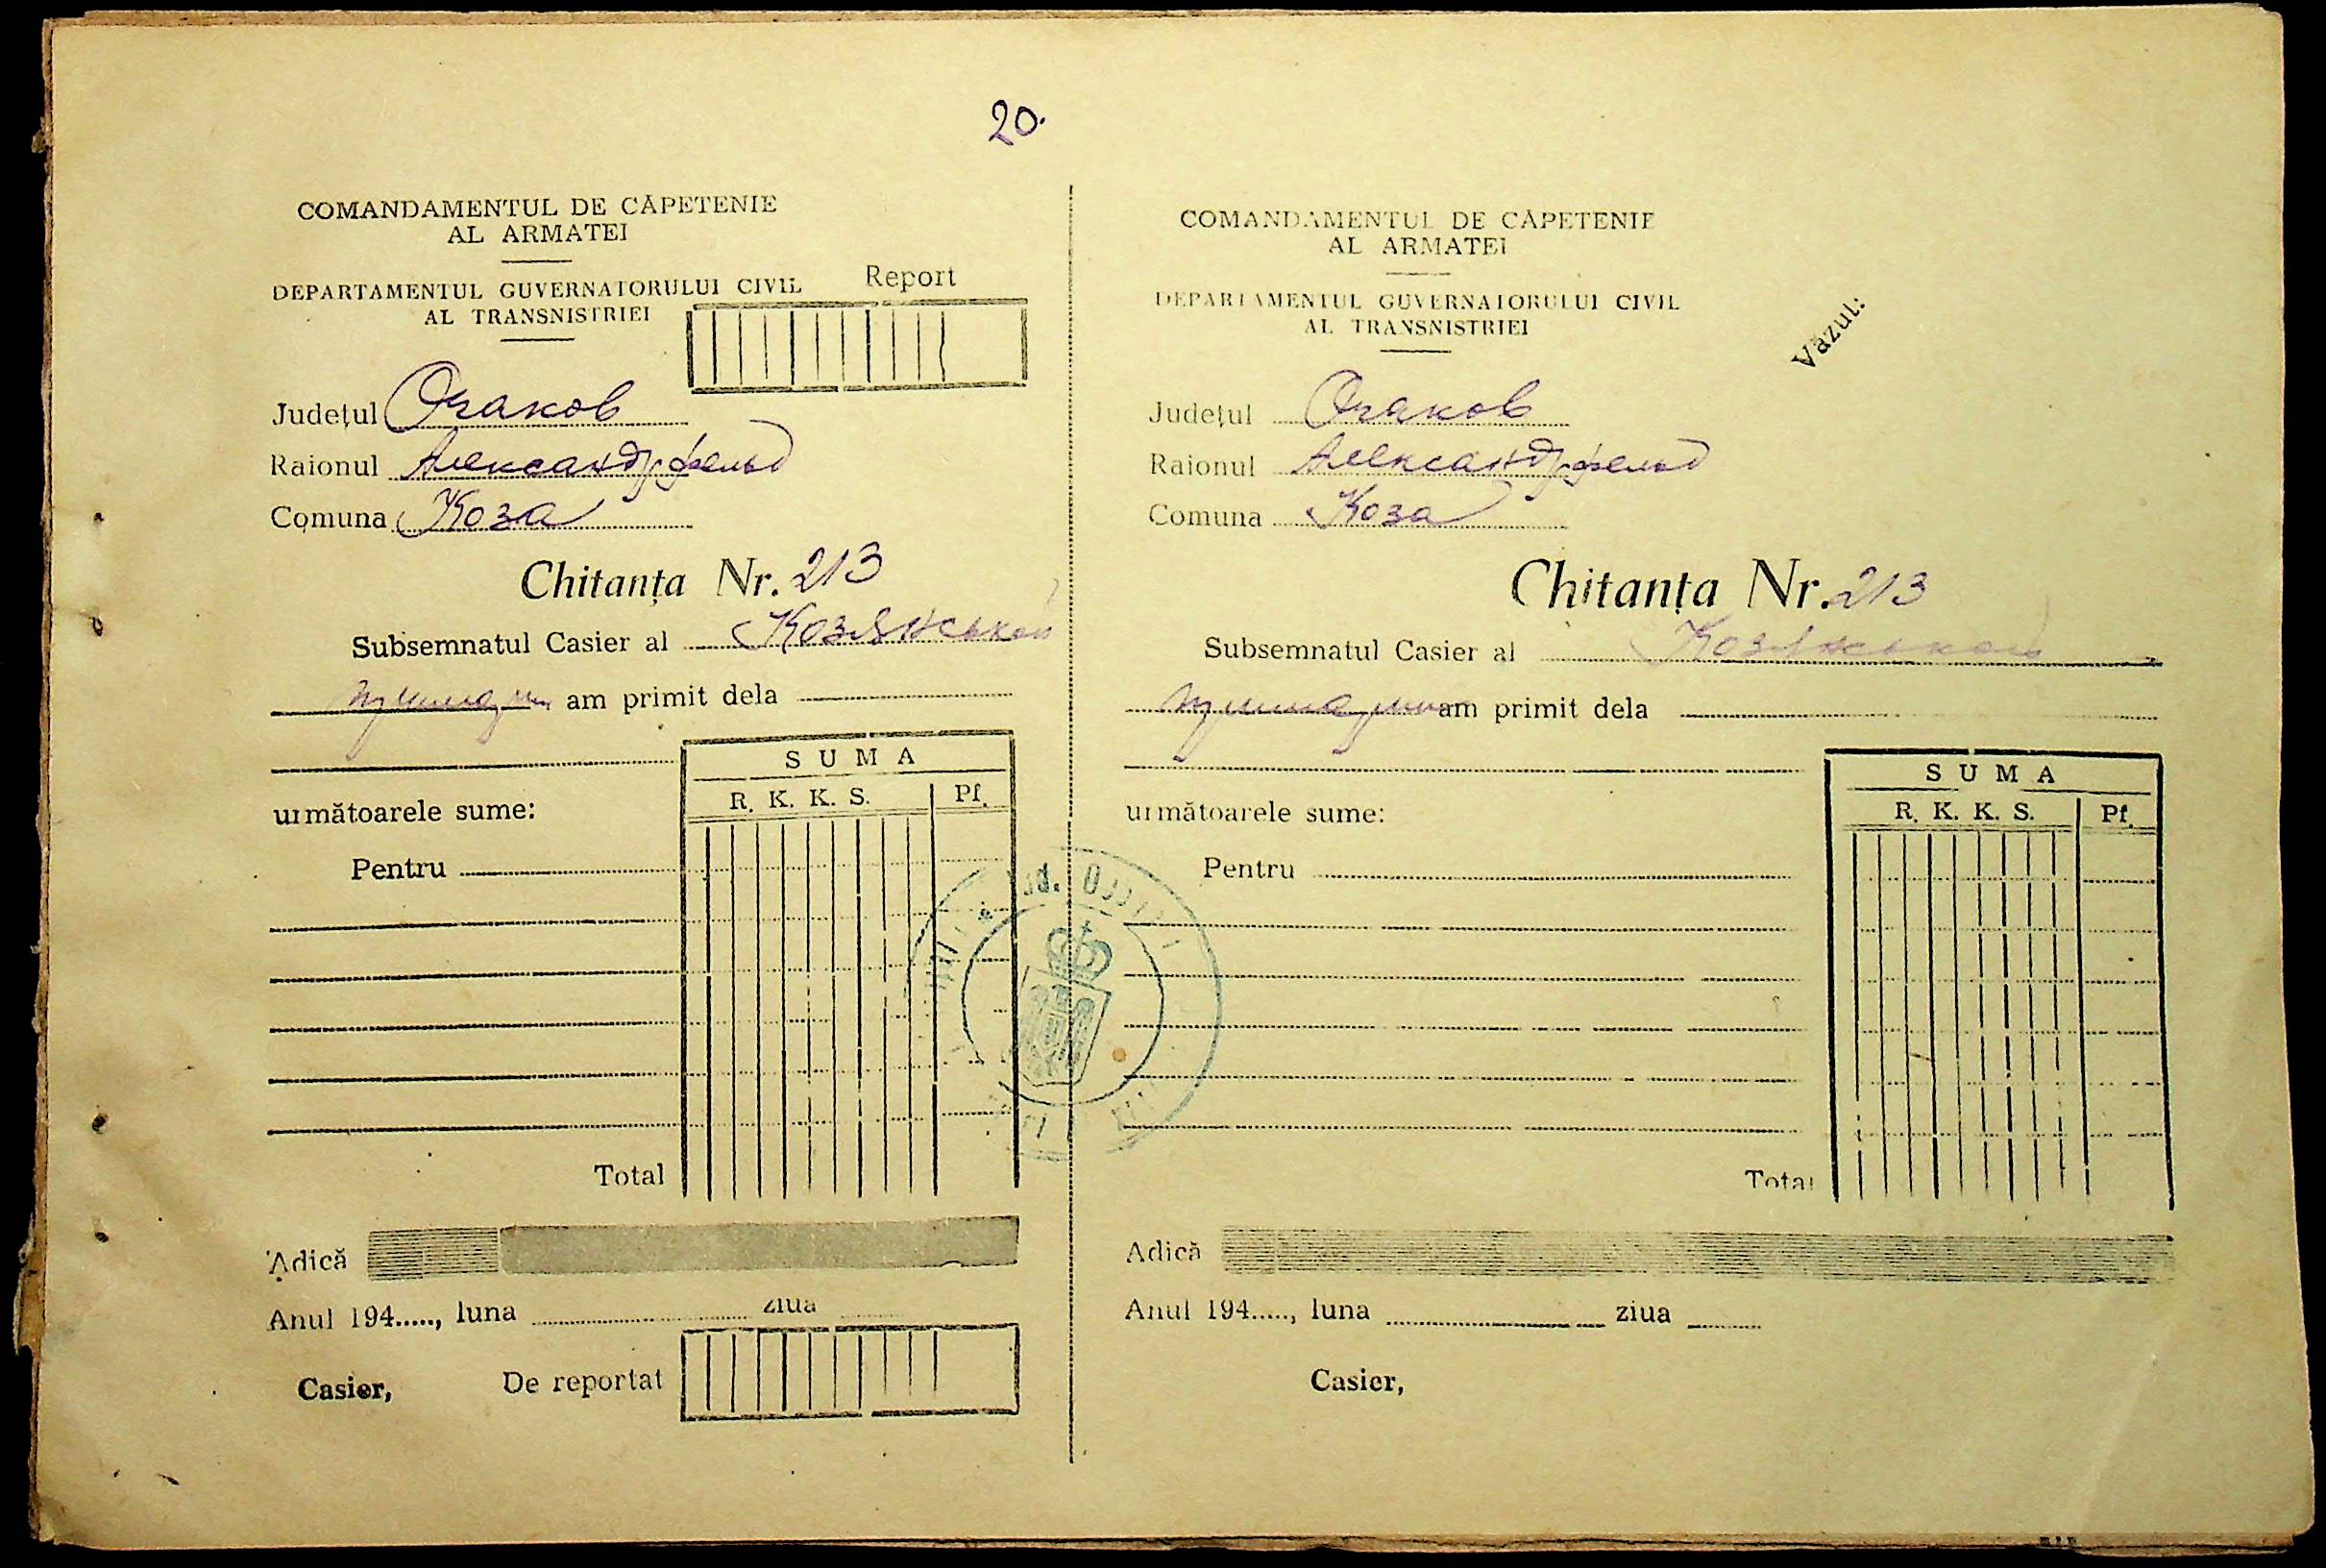 20.
COMANDAMENTUL DE CĂPETENIE
AL ARMATEI
DEPARTAMENTUL GUVERNATORULUI CIVIL
AL TRANSNISTRIEI
Report
Județul Очаков
Raionul Александрфельд
Comuna Коза
Chitanța Nr. 213
Subsemnatul Casier al Козянськой
am primit dela
SUMA
R. K. K. S. Pf.
următoarele sume:
Pentru
Total
Adică
Anul 194....., luna ziua
Casier, De reportat
COMANDAMENTUL DE CĂPETENIE
AL ARMATEI
DEPARTAMENTUL GUVERNATORULUI CIVIL
AL TRANSNISTRIEI
Văzut:
Județul Очаков
Raionul Александрфельд
Comuna Коза
Chitanța Nr. 213
Subsemnatul Casier al Козянськой
am primit dela
SUMA
R. K. K. S. Pf.
următoarele sume:
Pentru
Total
Adică
Anul 194....., luna ziua
Casier,